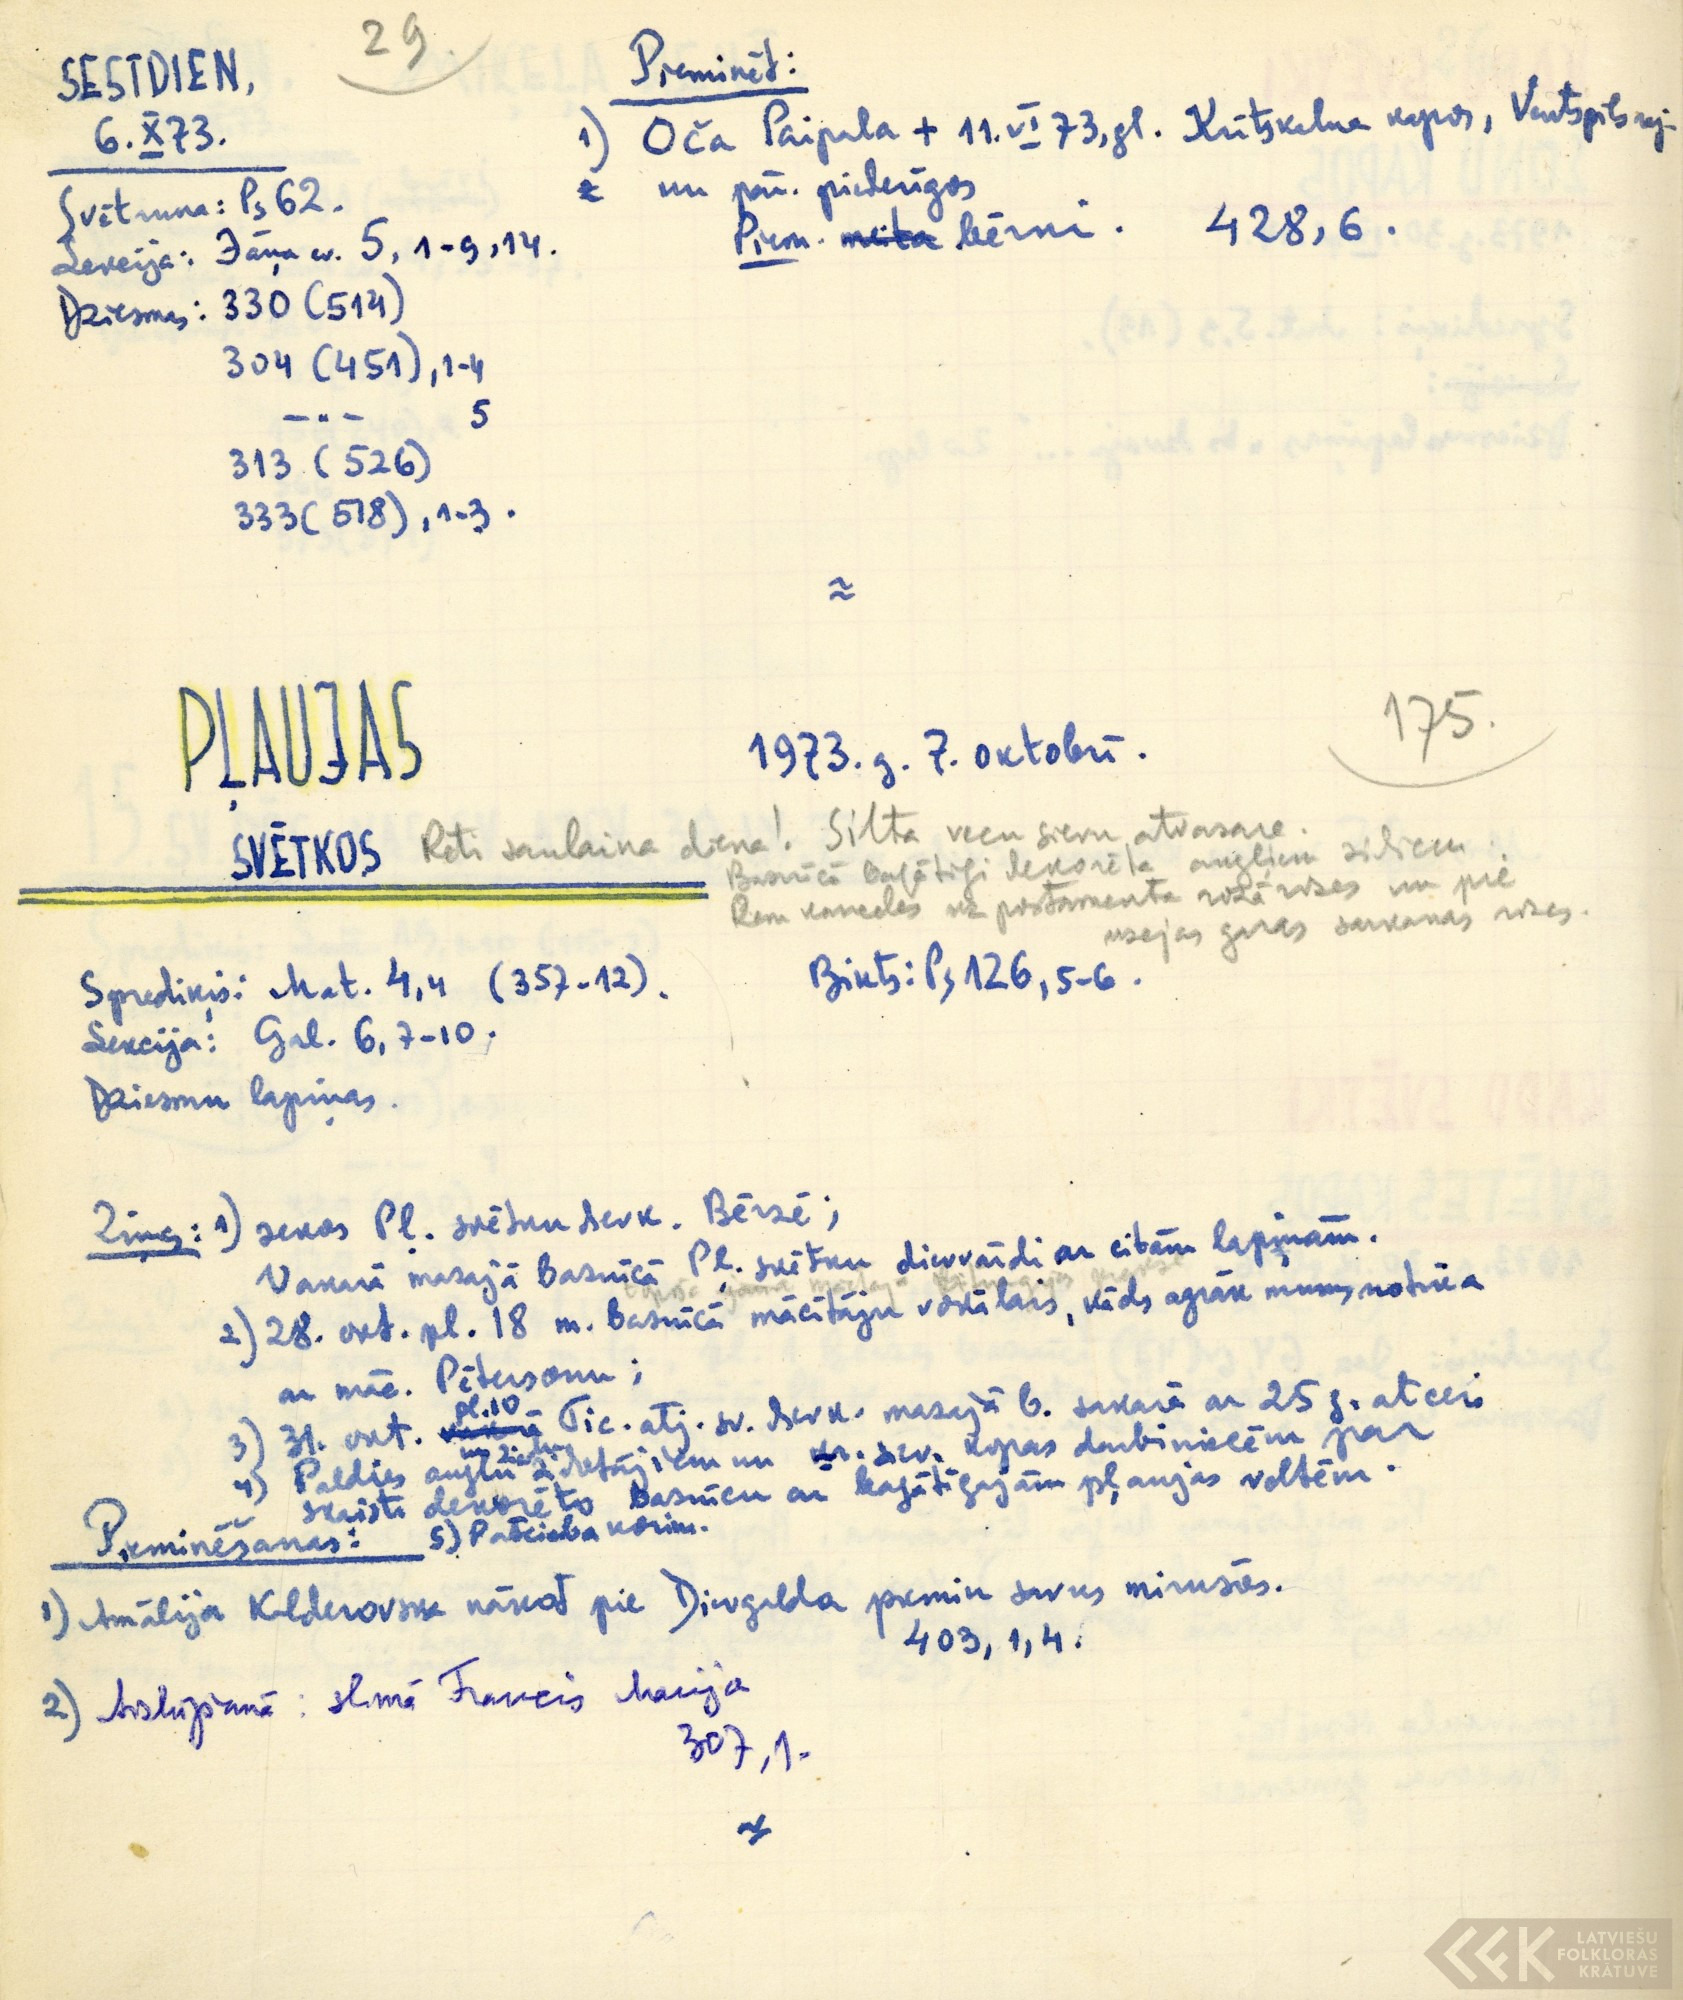 29.
SESTDIEN,
6. X 73.
Svētruna: Ps 62.
Lekcija: Jāņa ev. 5, 1-9, 14.
Dziesmas: 330 (514)
304 (451), 1-4
— " — 5
313 (526)
333 (518), 1-3.
Pieminēt:
1) Oča Paipala + 11. VI 73, gl. Krūtskalna kapos, Ventspils raj.
un pār. piederīgos
Piem. meita bērni. 428, 6.
≈
PĻAUJAS
SVĒTKOS
1973. g. 7. oktobrī.
175.
Reti saulaina diena! Silta vecu sievu atvasara.
Baznīcā bagātīgi dekorēta augļiem ziediem.
kanceles uz postamenta rozā rozes un pie
ieejas garas sarkanas rozes.
Sprediķis: Mat. 4,4 (357-12).
Bikts: Ps 126, 5-6.
Lekcija: Gal. 6, 7-10.
Dziesmu lapiņas.
Ziņas: 1) sekos Pļ. svētku dievk. Bērzē;
Vakarā mazajā baznīcā Pļ. svētku dievvārdi ar citām lapiņām.
2) 28. okt. pl. 18 m. baznīcā mācītāju vokālais, kāds agrāk mums notika
ar māc. Pētersonu;
3) 31. okt. pl. 10 Tic. atj. sv. dievk. mazajā b. sakarā ar 25 g. atceri
4) Paldies augļu un ziedu ziedotājiem un sev. kopas darbiniecēm par
skaisti dekorēto baznīcu ar bagātīgajām pļaujas veltēm.
5) Pateicība korim.
Pieminēšanas:
1) Amālija Kalderovska nākot pie Dievgalda piemin savus mirušos.
403, 1, 4.
2) Aizlūgšanā: slimā Francis Marija
307, 1.
LATVIEŠU
FOLKLORAS
KRĀTUVE